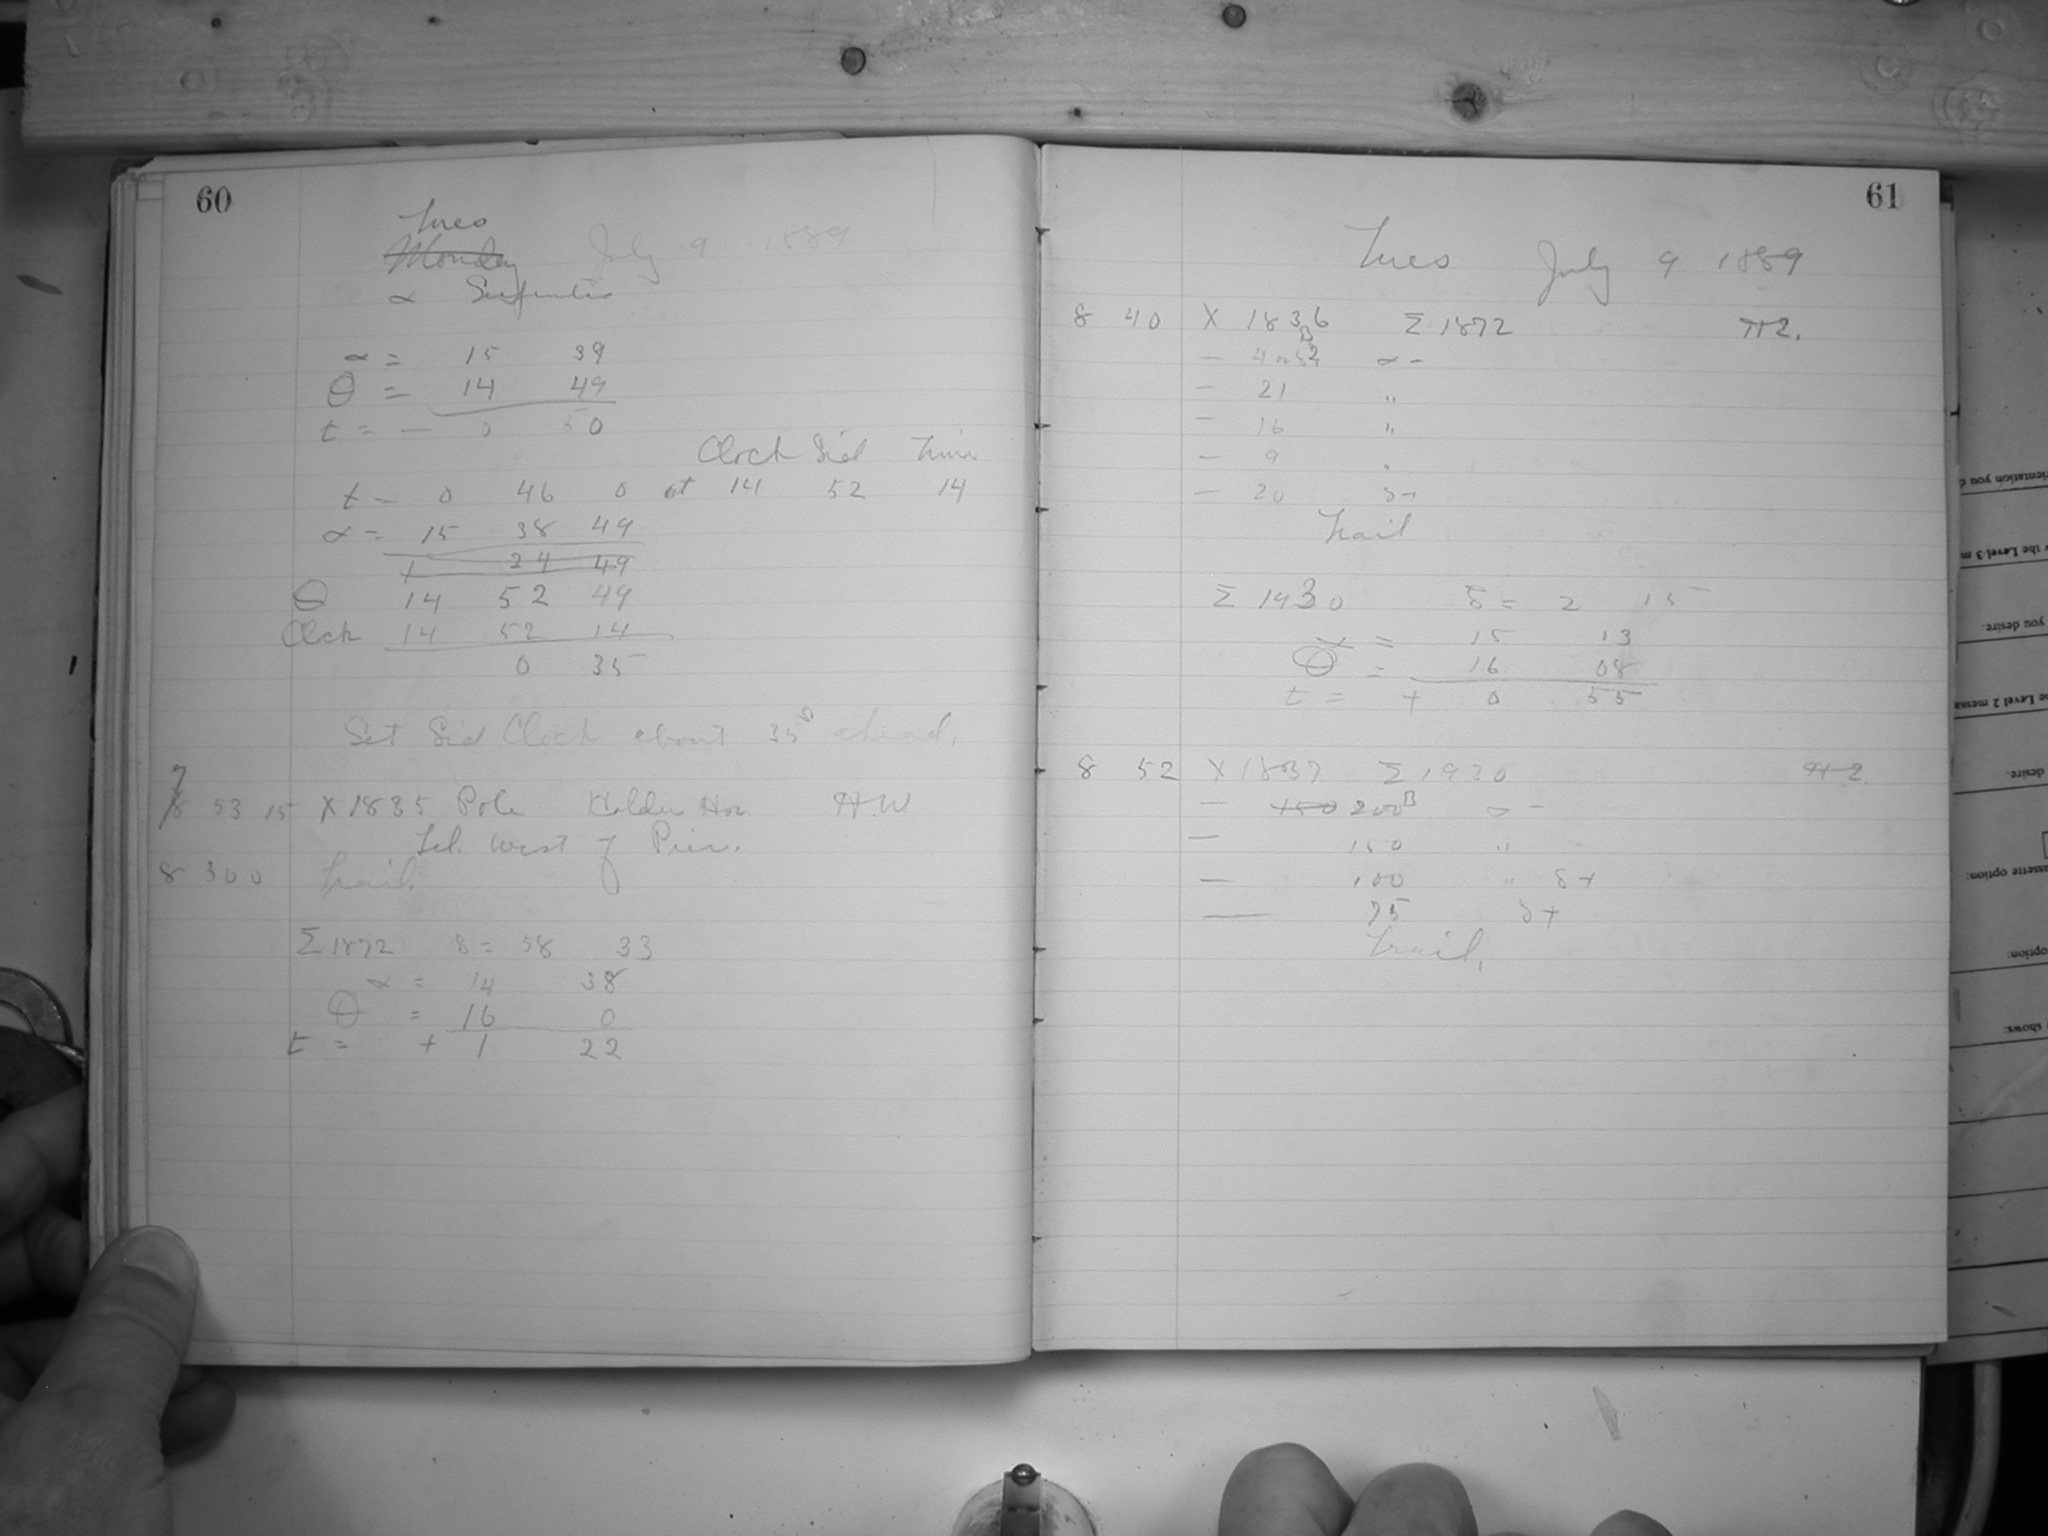 60
Tues
Monday July 9 1889
α Serpentis
α = 15 39
θ = 14 49
t = — 0 50
Clock Sid Time
t — 0 46 0 at 14 52 14
α = 15 38 49
+ 24 49
θ 14 52 49
Clock 14 52 14
0 35
Set Sid Clock about 35s ahead.
7
8 53 15 X 1835 Pole Holder Hor. H.W
Tel. West of Pier.
8 30 0 Trail.
Σ 1872 δ = 58 33
α = 14 38
θ = 16 0
t = + 1 22
61
Tues July 9 1889
8 40 X 1836 Σ 1872 π 2.
— α —
— 21 "
— 16 "
— 9 "
— 20 δ +
Trail
Σ 1930 δ = 2 15
α = 15 13
θ = 16 08
t = + 0 55
8 52 X 1837 Σ 1930 π 2
— 150 200 B α —
— 150 "
— 100 " δ +
— 75 δ +
Trail.
you desire.
Level 2
desire.
cassette option:
option:
shows: